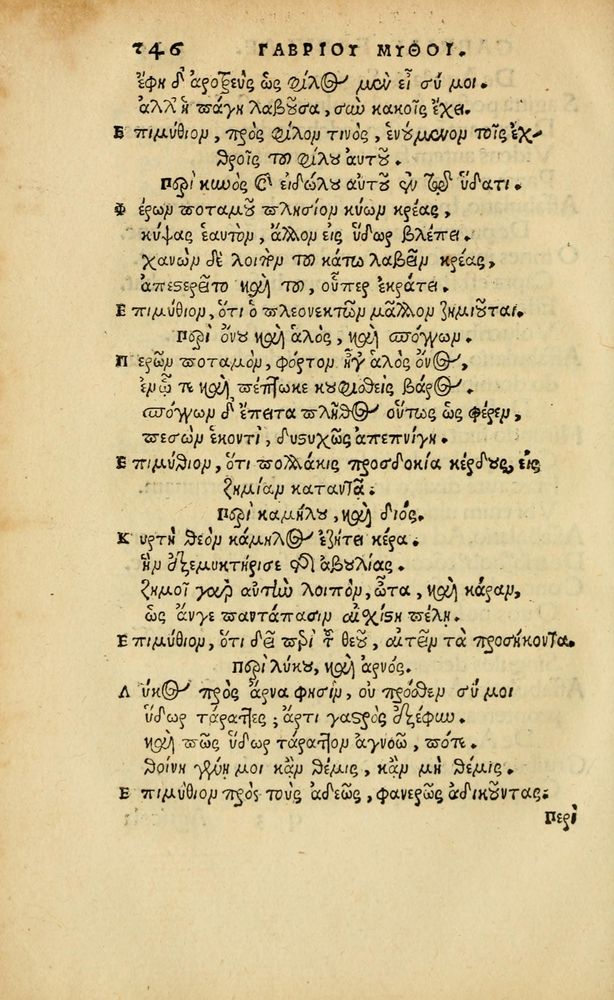 246 ΓΑΒΡΙΟΥ ΜΥΘΟΙ.
ἔφη δ' ἀροτρεὺς ὡς φίλος μὲν εἶ σύ μοι.
ἀλλ' ἡ πάγη λαβοῦσα, σὺν κακοῖς ἔχει.
Επιμύθιον, πρὸς φίλον τινὸς, ἑνούμενον τοῖς ἐχ-
θροῖς τοῦ φίλου αὐτοῦ.
Περὶ κυνὸς καὶ εἰδώλου αὐτοῦ ἐν τῷ ὕδατι.
Φέρων ποταμοῦ πλησίον κύων κρέας,
κύψας ἑαυτὸν, ἄλλον εἰς ὕδωρ βλέπει.
χανὼν δὲ λοιπὸν τοῦ κάτω λαβεῖν κρέας,
ἀπεστερεῖτο καὶ τοῦ, οὗπερ ἐκράτει.
Επιμύθιον, ὅτι ὁ πλεονεκτῶν μᾶλλον ζημιοῦται.
Περὶ ὄνου καὶ ἁλὸς, καὶ σπόγγων.
Περῶν ποταμὸν, φόρτον ἦγ' ἁλὸς ὄνος,
ἐν ᾧ τε καὶ πέπτωκε κουφισθεὶς βάρος.
σπόγγων δ' ἔπειτα πλῆθος οὕτως ὡς φέρεν,
πεσὼν ἑκοντὶ, δυστυχῶς ἀπεπνίγη.
Επιμύθιον, ὅτι πολλάκις προσδοκία κέρδους, εἰς
ζημίαν καταντᾷ.
Περὶ καμήλου, καὶ διός.
Κυρτὴ θεὸν κάμηλος ἐζήτει κέρα.
ἣν ἐξεμυκτήρισε τῆς ἀβουλίας.
ζημιοῖ γὰρ αὐτὴν λοιπὸν, ὦτα, καὶ κάραν,
ὡς ἄνγε παντάπασιν αἰχίστη πέλῃ.
Επιμύθιον, ὅτι δεῖ παρὰ τοῦ θεοῦ, αἰτεῖν τὰ προσήκοντα.
Περὶ λύκου, καὶ ἀρνός.
Λύκος πρὸς ἄρνα φησὶν, οὐ πρόσθεν σύ μοι
ὕδωρ τάραττες; ἄρτι γαστρὸς ἐξέφυν.
καὶ πῶς ὕδωρ τάραττον ἀγνοῶ, πότε.
θοίνη γενῇ μοι κἂν θέμις, κἂν μὴ θέμις.
Επιμύθιον πρὸς τοὺς ἀδεῶς, φανερῶς ἀδικοῦντας.
Περὶ